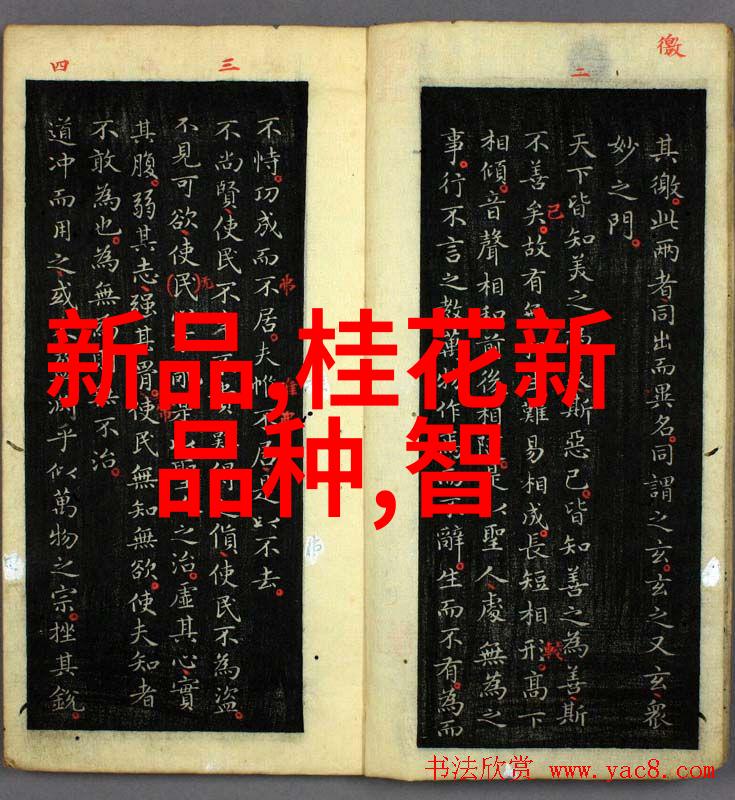 徼
二
其徼。此兩者、同出而異名。同謂之玄。玄之又玄、眾
妙之門。
天下皆知美之斯惡已。皆知善之為善斯
不善矣。故有難易相成。長短相形。高下
相傾。音聲相和前後相是以聖人處無為之
事。行不言之教。萬作而不辭。生而不有。為而
三
四
不恃。功成而不居。夫惟不居是以不去。
不尚賢、使民不難得之貨、使民不為盜。
不見可欲、使民是以聖之治。虛其心、實
其腹。弱其志、強其骨。使民無知無欲。使夫知者
不敢為也。為無不治。
道冲而用之、或淵乎似萬物之宗。挫其銳。
新品,桂花新
品种,智
书法欣赏 www.yac8.com